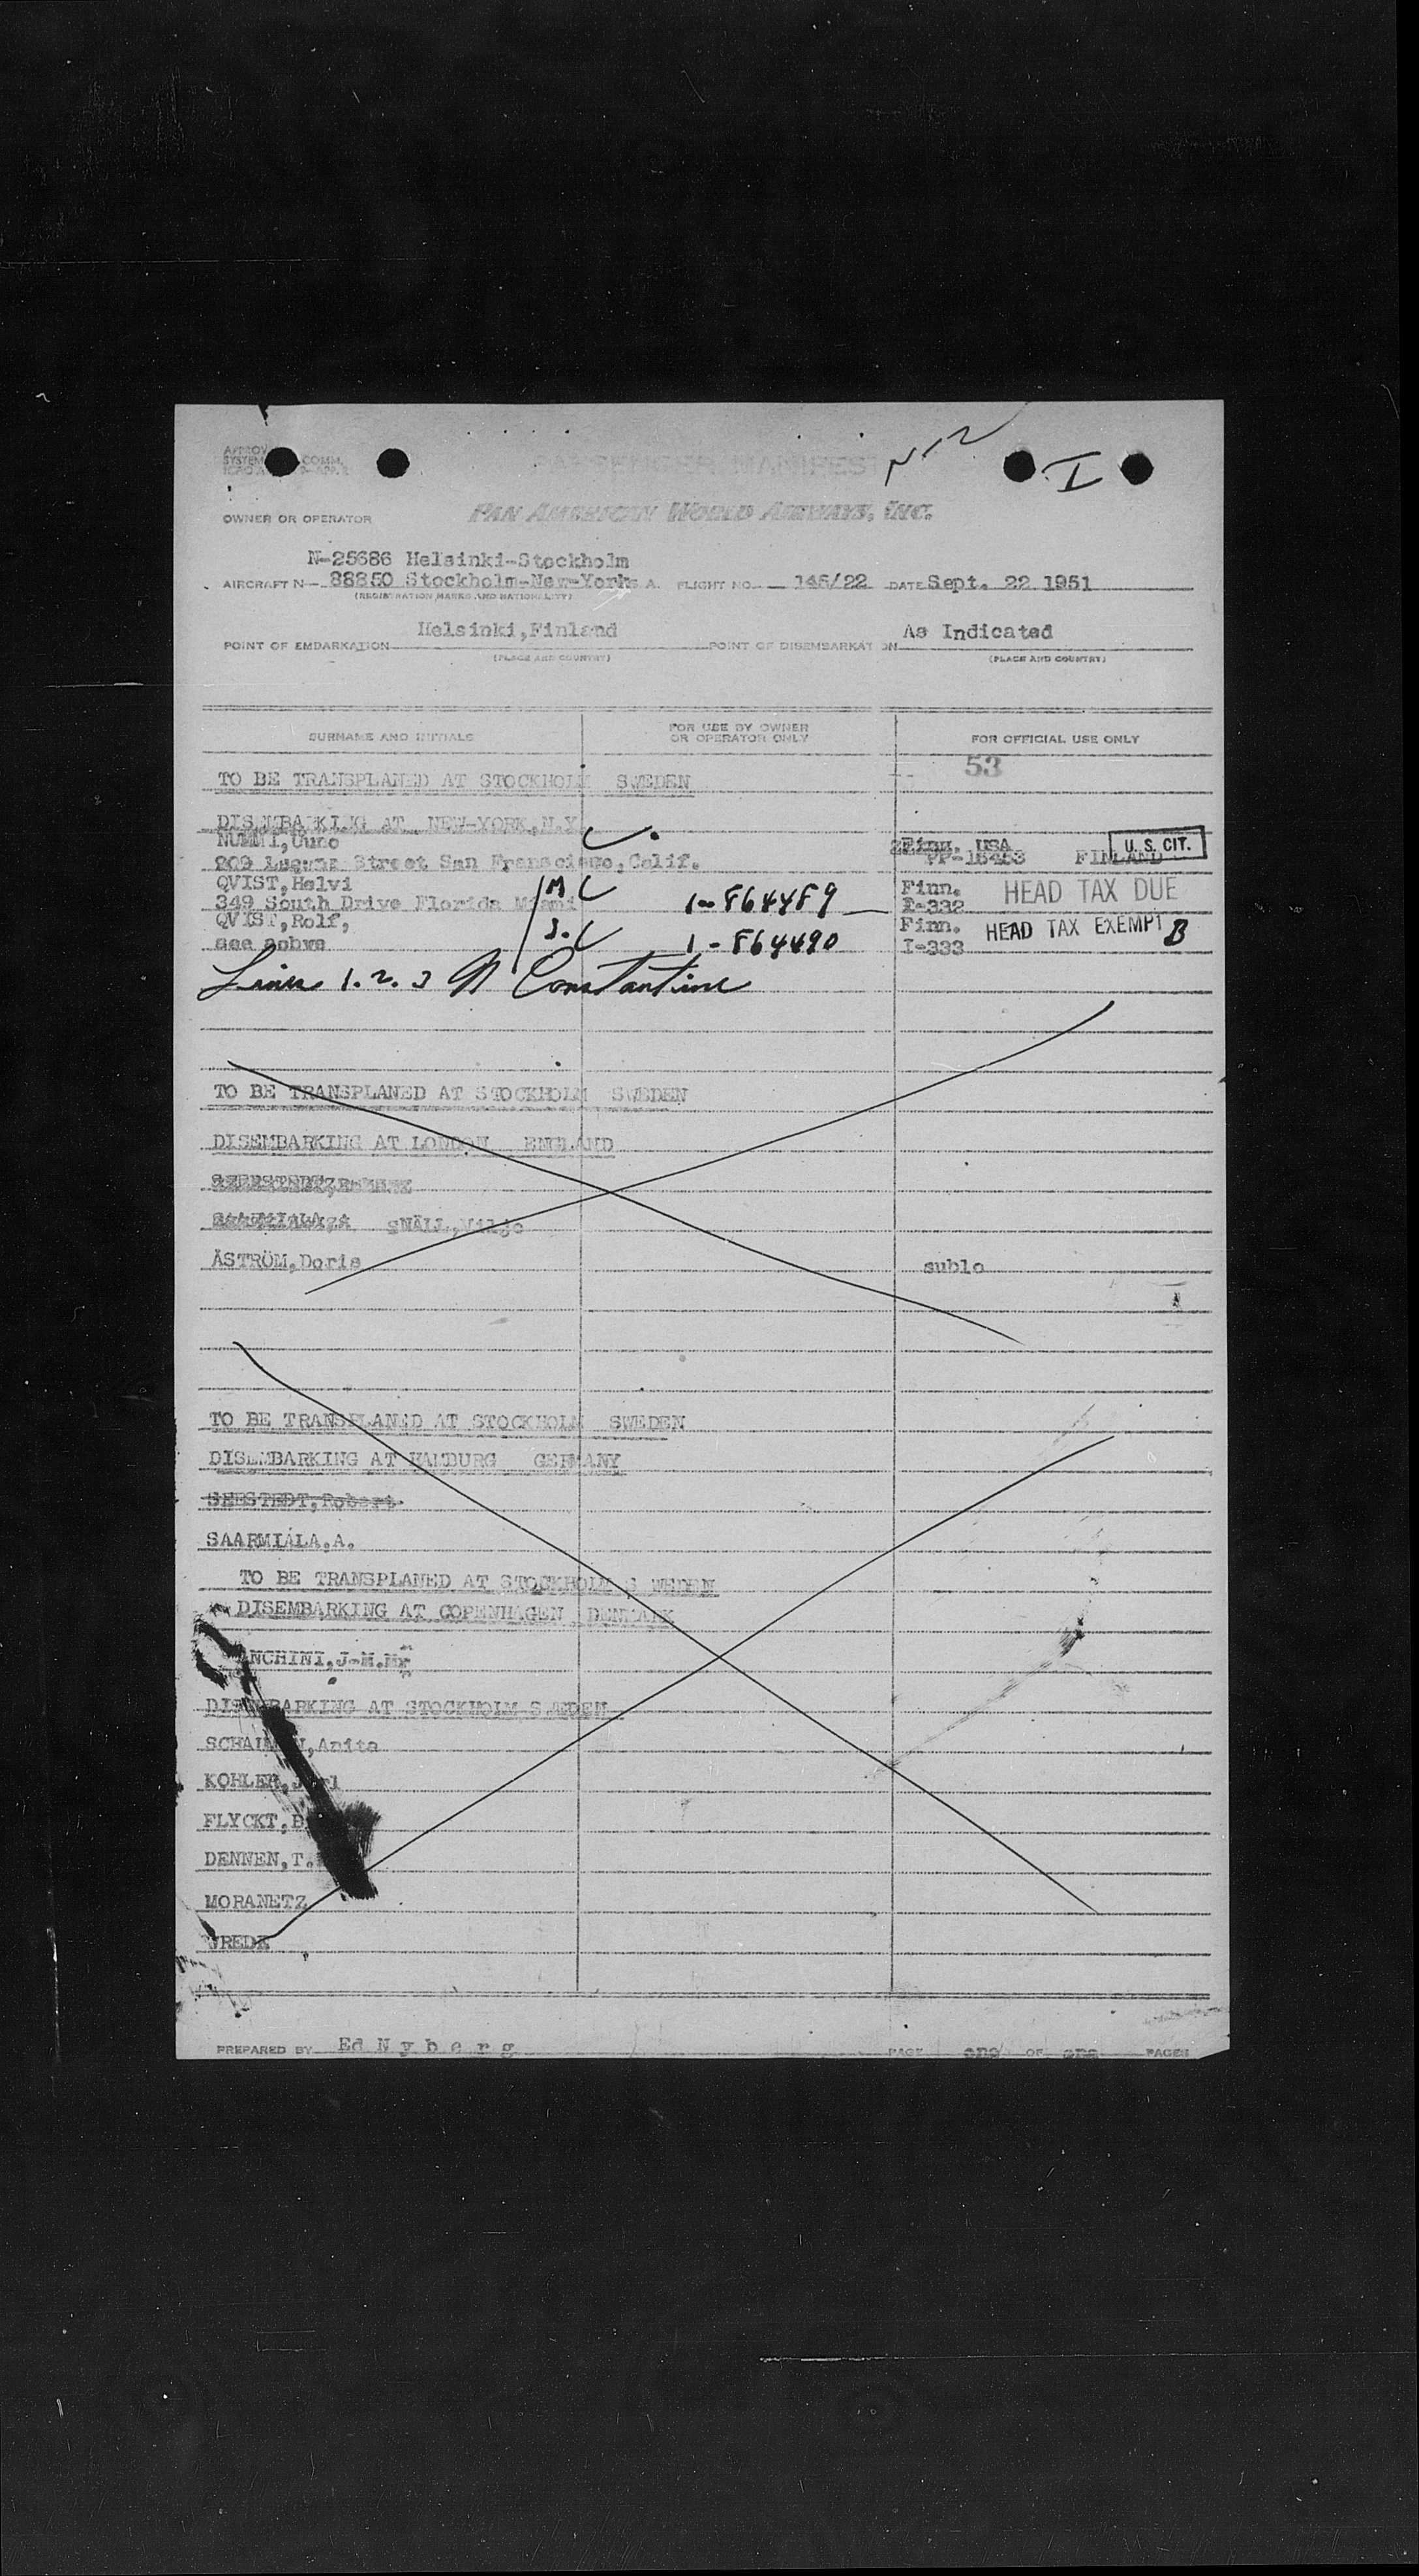 N-12 I
PASSENGER MANIFEST
PAN AMERICAN WORLD AIRWAYS, INC.
OWNER OR OPERATOR
N-25686 Helsinki-Stockholm
AIRCRAFT N— 88850 Stockholm-New-York A. FLIGHT NO. — 146/22 DATE Sept. 22 1951
(REGISTRATION MARKS AND NATIONALITY)
Helsinki,Finland As Indicated
POINT OF EMBARKATION POINT OF DISEMBARKATION
(PLACE AND COUNTRY) (PLACE AND COUNTRY)
SURNAME AND INITIALS FOR USE BY OWNER OR OPERATOR ONLY FOR OFFICIAL USE ONLY
53
TO BE TRANSPLANED AT STOCKHOLM SWEDEN
DISEMBARKING AT NEW-YORK,N.Y.
NUMMI,Uuno Finn. USA U. S. CIT.
209 Laguna Street San Franscisco,Calif. PP-15453 FINLAND
QVIST,Helvi M Finn. HEAD TAX DUE
349 South Drive Florida Miami 1-864489 I-332
QVIST,Rolf, S. Finn. HEAD TAX EXEMPT B
see aobve 1-864490 I-333
Lines 1.2.3 N Constantine
TO BE TRANSPLANED AT STOCKHOLM SWEDEN
DISEMBARKING AT LONDON ENGLAND
SNÄLL,Viljo
ÅSTRÖM,Doris sublo
TO BE TRANSPLANED AT STOCKHOLM SWEDEN
DISEMBARKING AT HAMBURG GERMANY
SEESTEDT,Robert
SAARMIALA,A.
TO BE TRANSPLANED AT STOCKHOLM SWEDEN
DISEMBARKING AT COPENHAGEN DENMARK
NCHINI,J-M.Mr
DISEMBARKING AT STOCKHOLM SWEDEN
SCHAUMAN,Anita
KOHLER,
FLYCKT,B
DENNEN,T.
MORANETZ
WREDE
PREPARED BY Ed Nyberg PAGE one OF one PAGES